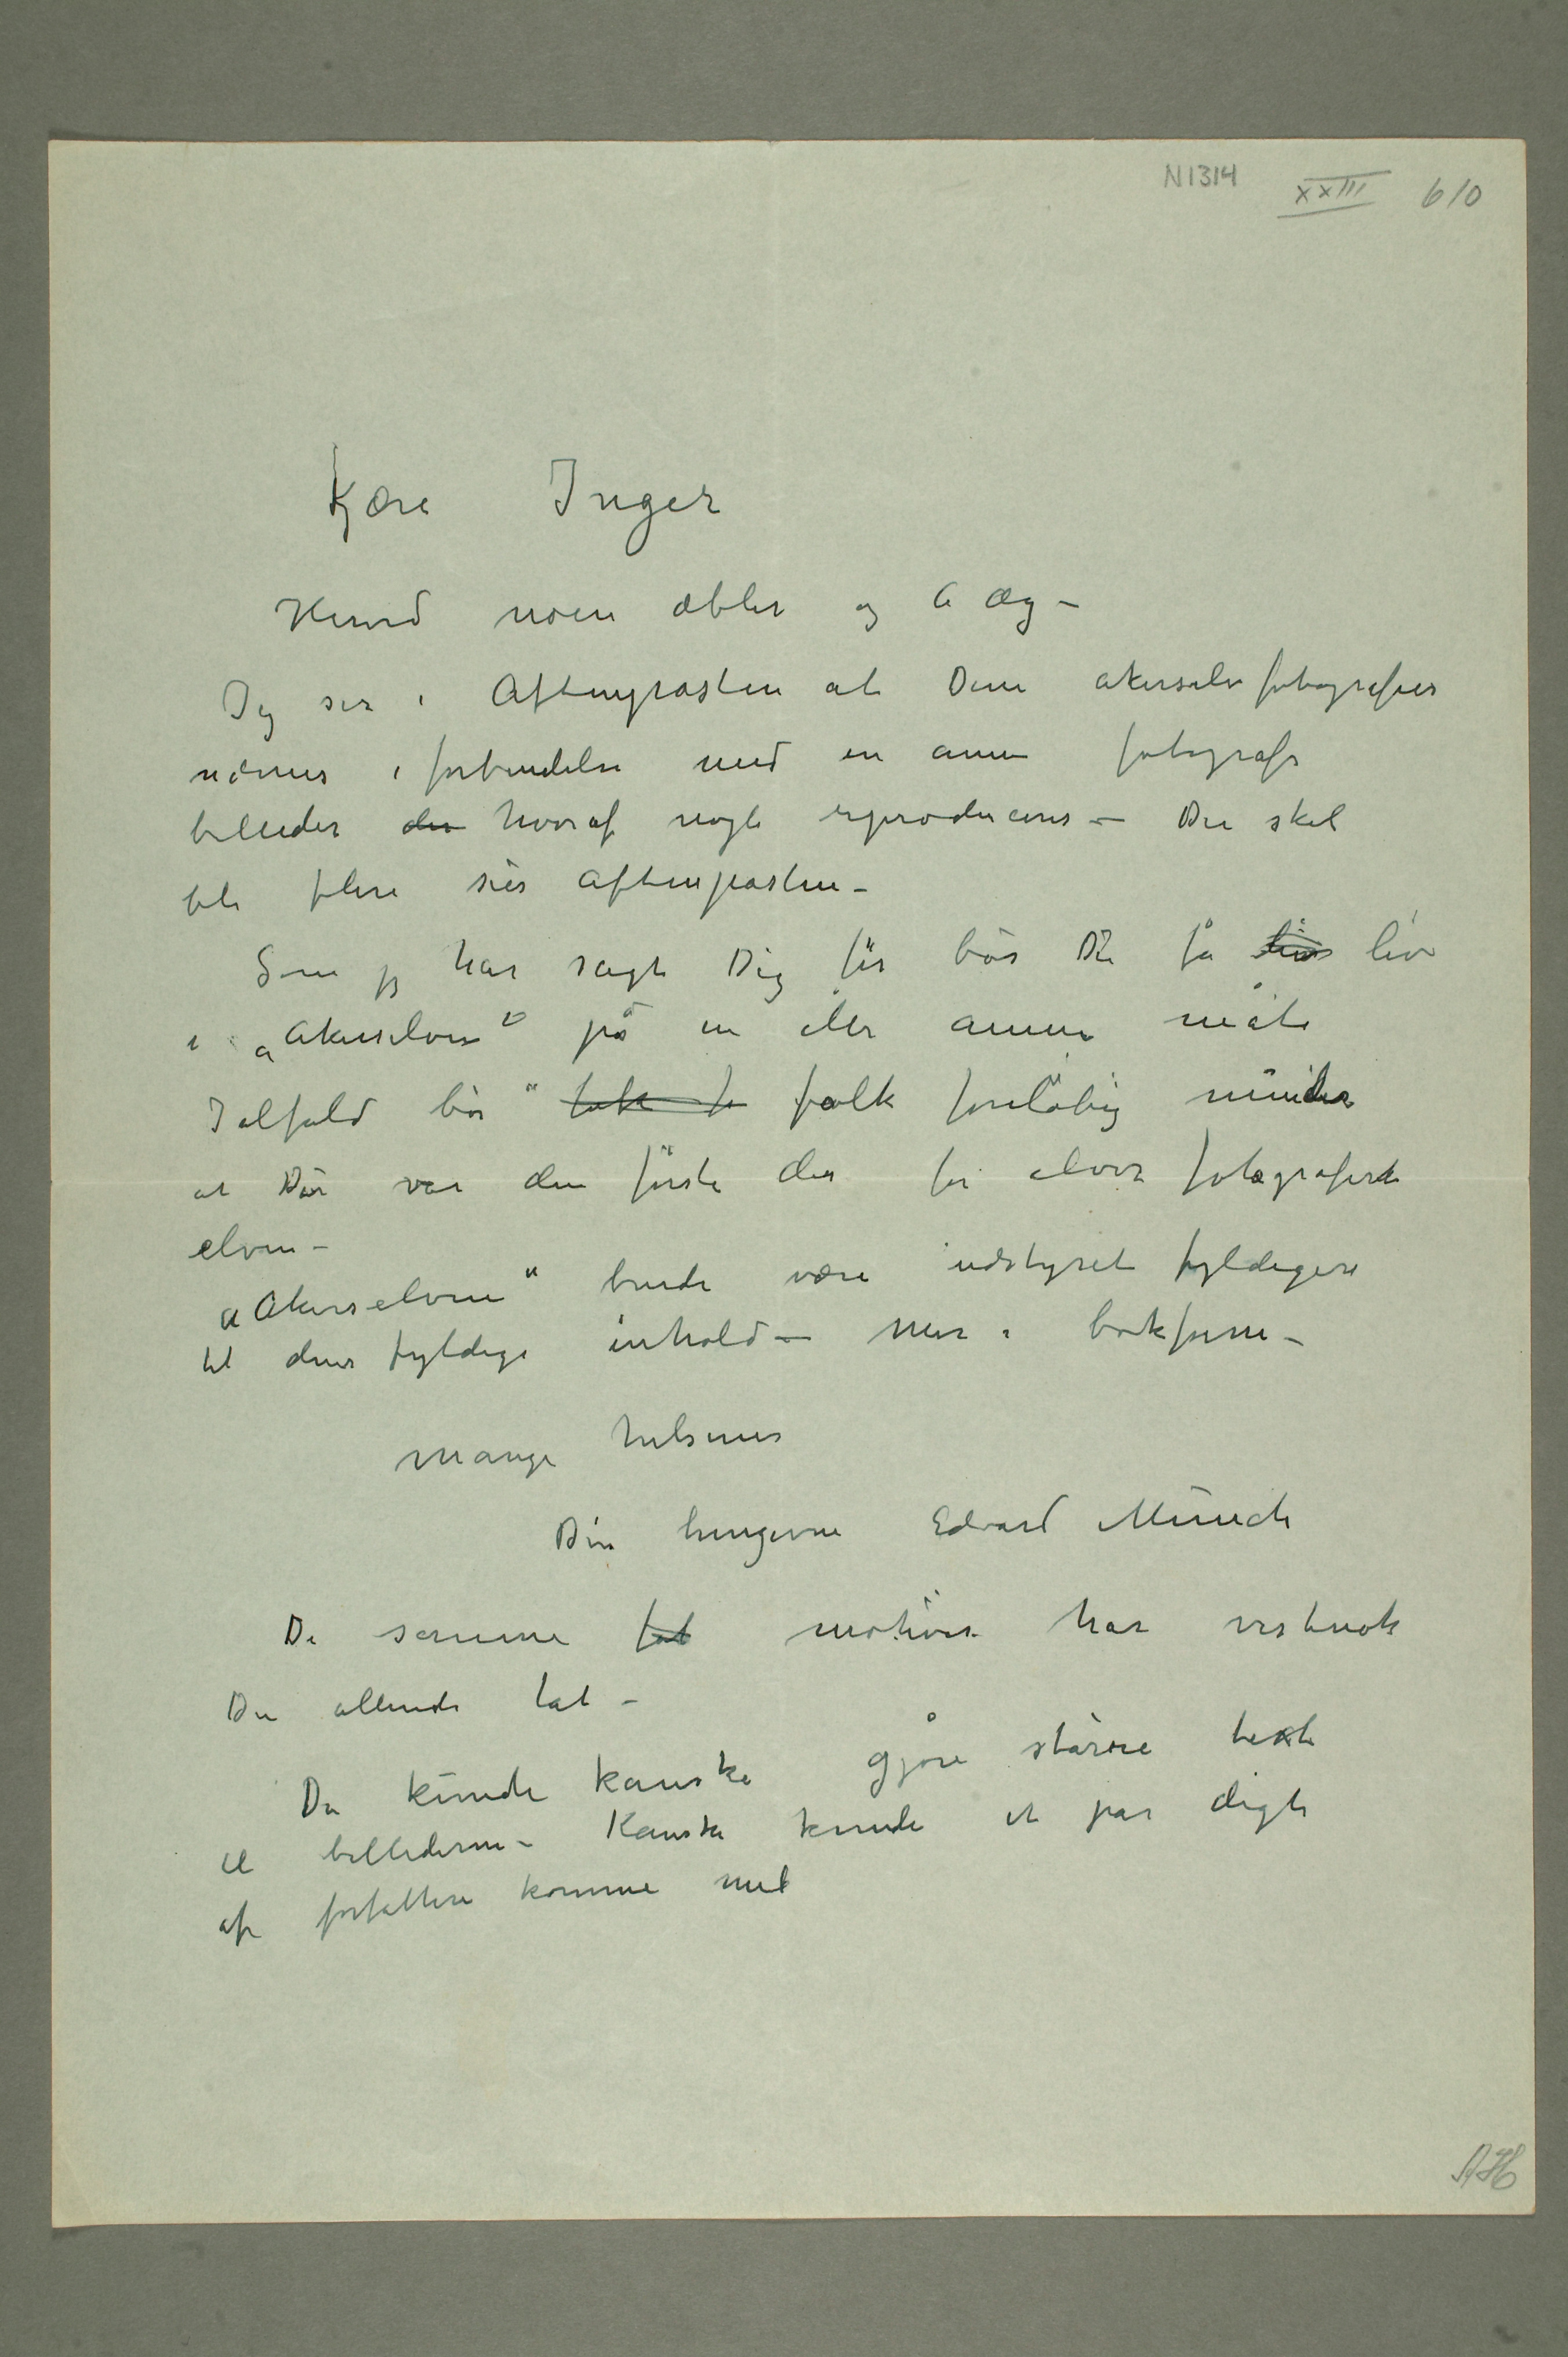 N1314 XXIII 610
Kjære Inger
Herved noen æbler og 6 æg –
Jeg ser i Aftenposten at Dine akerselvfotografier
nævnes i forbindelse med en annen fotografs
billeder der hvoraf nogle reproduceres – Der skal
bli flere sier Aftenposten –
Som jeg har sagt Dig før bør Du få liv liv
i „Akerselven“ på en eller annen måte
Ialfald bør folk foreløbig mindes
at Du var den første der for alvor fotograferte
elven –
„Akerselven“ burde være udstyret fyldigere
til dens fyldige inhold – mer i bokform –
Mange hilsener
Din hengivne Edvard Munch
De samme fot motiver har vistnok
Du allerede tat –
Du kunde kanske gjøre større text
til billederne – Kanske kunde et par digte
af forfattere komme med
AH